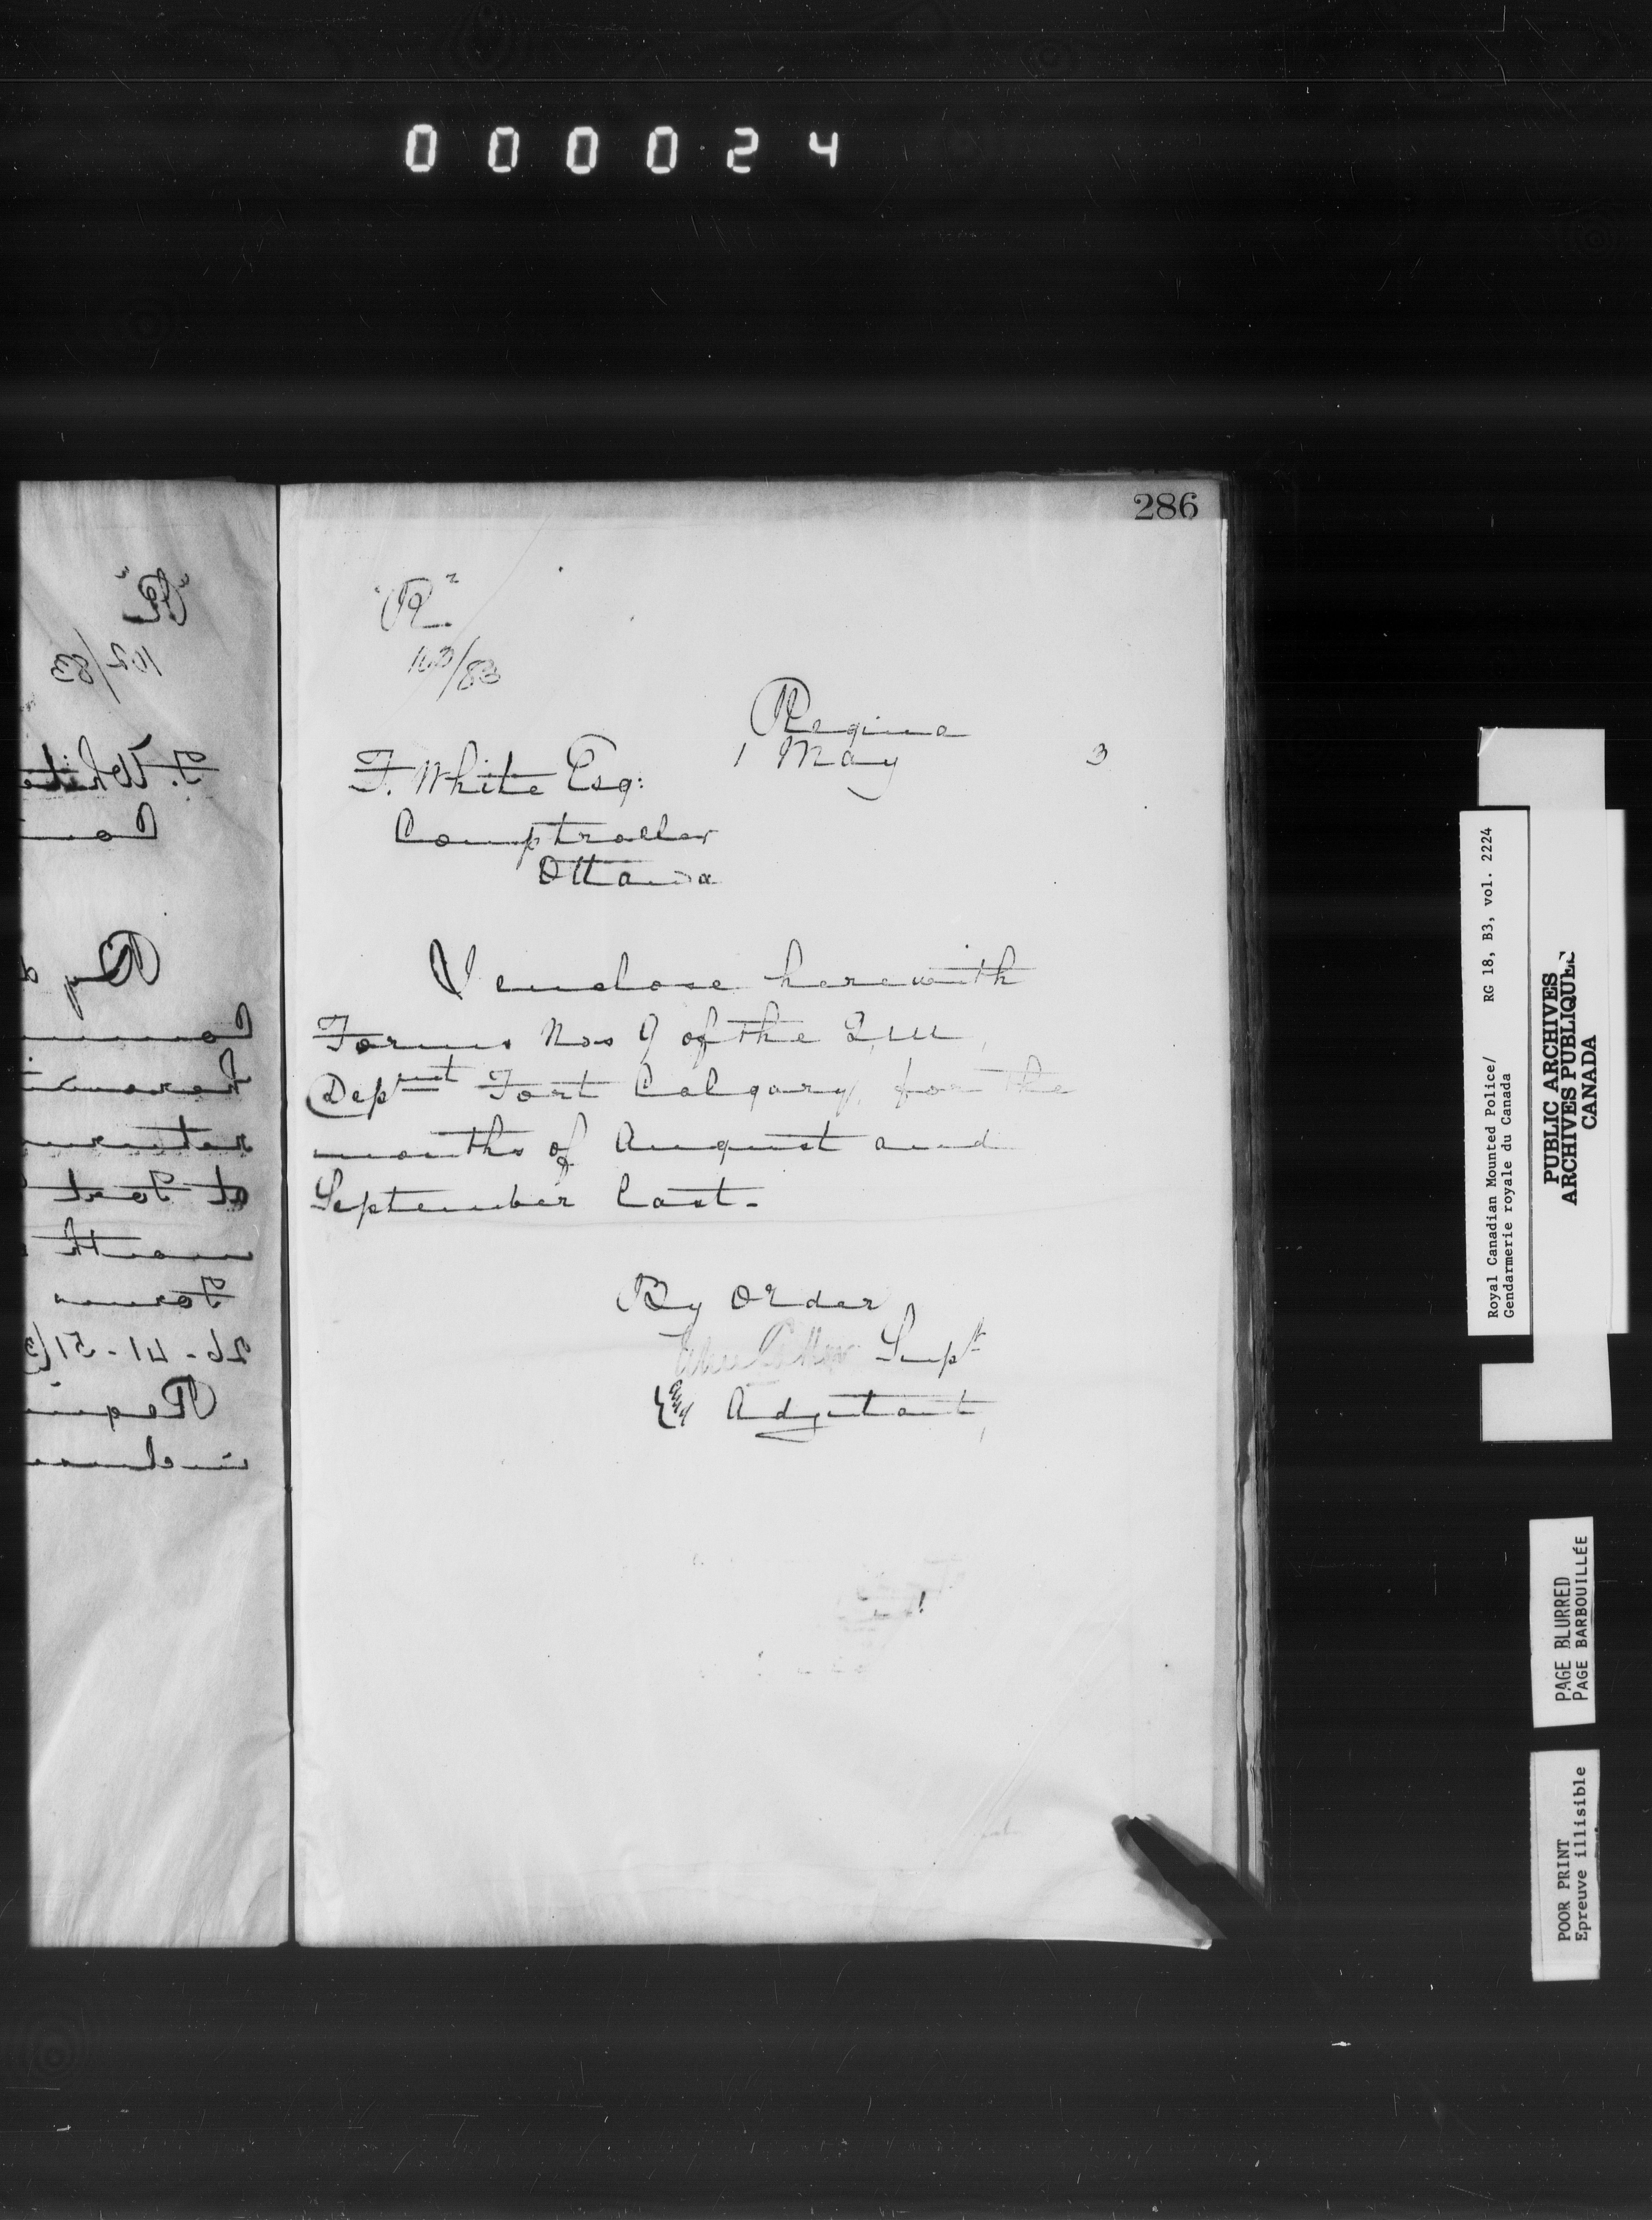 000024
286
"R"
103/83
Regina
1 May 3
F. White Esq:
Comptroller
Ottawa
I enclose herewith
Forms Nos 9 of the Q.M.
Depmnt Fort Calgary, for the
months of August and
September last.
By order
Supt
Adjutant
"R"
102/83
F. White
Com
By
at Fort
month
Forms
26-41-51
Royal Canadian Mounted Police/ RG 18, B3, vol. 2224
Gendarmerie royale du Canada
PUBLIC ARCHIVES
ARCHIVES PUBLIQUES
CANADA
PAGE BLURRED
PAGE BARBOUILLÉE
POOR PRINT
Epreuve illisible